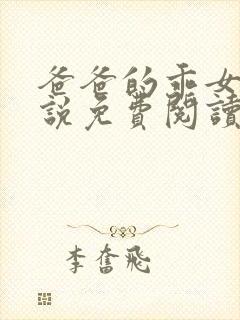 爸爸的乖女
說免費閱讀
李奮飛